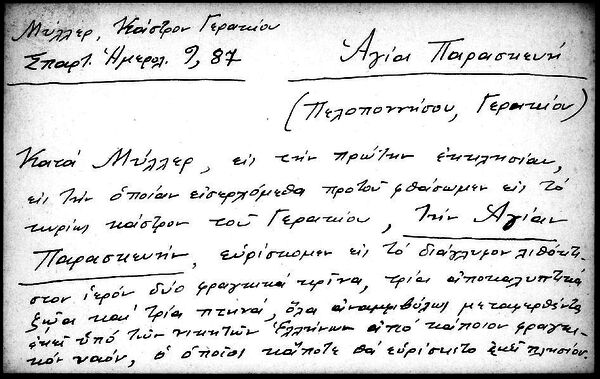 Μύλλερ, Κάστρον Γερακίου
Σπαρτ. Ἡμερολ. 9, 87
Ἁγία Παρασκευή
(Πελοποννήσου, Γεράκιον)
Κατά Μύλλερ, εἰς τήν πρώτην ἐκκλησίαν,
εἰς τήν ὁποίαν εἰσερχόμεθα προτοῦ φθάσωμεν εἰς τό
κυρίως κάστρον τοῦ Γερακίου, τήν Ἁγίαν
Παρασκευήν, εὑρίσκομεν εἰς τό διάγλυφον λιθόκτι-
στον ἱερόν δύο φραγκικά κρίνα, τρία ἀποκαλυπτικά
ζῶα καί τρία πτηνά, ὅλα μεταφερθέντα
ἐκεῖ ὑπό τῶν νικητῶν Ἑλλήνων ἀπό κάποιον φραγκι-
κόν ναόν, ὁ ὁποῖος κάποτε θά εὑρίσκετο ἐκεῖ πλησίον.